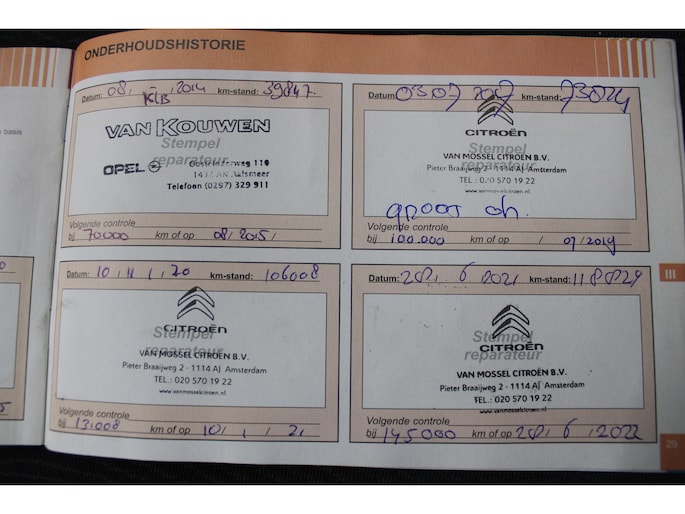 ONDERHOUDSHISTORIE
basis
Datum: 08, - , 2014 km-stand: 39847.
KLB
VAN KOUWEN
Stempel
reparateur
OPEL
Oosteinderweg 110
Aalsmeer
Telefoon (0297) 329 911
Volgende controle
bij 70.000 km of op 08/2015/
Datum: 03 07 2017 km-stand: 73024
Stempel
CITROËN
reparateur
VAN MOSSEL CITROËN B.V.
Pieter Braaijweg 2 - 1114 AJ Amsterdam
TEL.: 020 570 19 22
www.vanmosselcitroen.nl
groot oh.
Volgende controle
bij 100.000 km of op / 07/2019
Datum: 10, 11 , 20 km-stand: 106008
CITROËN
Stempel
reparateur
VAN MOSSEL CITROËN B.V.
Pieter Braaijweg 2 - 1114 AJ Amsterdam
TEL.: 020 570 19 22
www.vanmosselcitroen.nl
Volgende controle
bij 13.008 km of op 10/ 1 / 21
Datum: 28, 6 , 2021 km-stand: 118829
Stempel
CITROËN
reparateur
VAN MOSSEL CITROËN B.V.
Pieter Braaijweg 2 - 1114 AJ Amsterdam
TEL.: 020 570 19 22
www.vanmosselcitroen.nl
Volgende controle
bij 145000 km of op 28, 6 , 2022
III
29